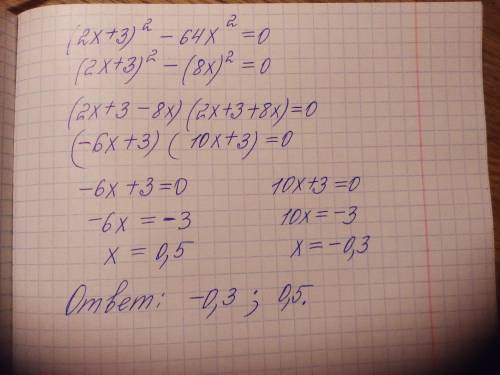 (2x+3)² - 64x² = 0
(2x+3)² - (8x)² = 0
(2x+3-8x)(2x+3+8x)=0
(-6x+3)(10x+3)=0
-6x+3=0 10x+3=0
-6x = -3 10x=-3
x = 0,5 x=-0,3
Ответ: -0,3; 0,5.